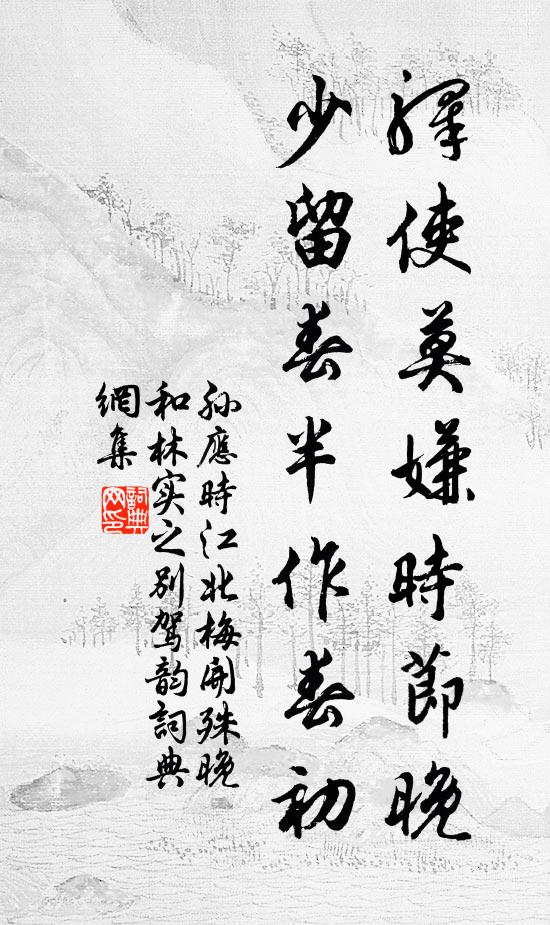 驛使莫嫌時節晚
少留春半作春初
孙應時江北梅開殊晚
和林实之别駕韵詞典
網集
詞典
网印